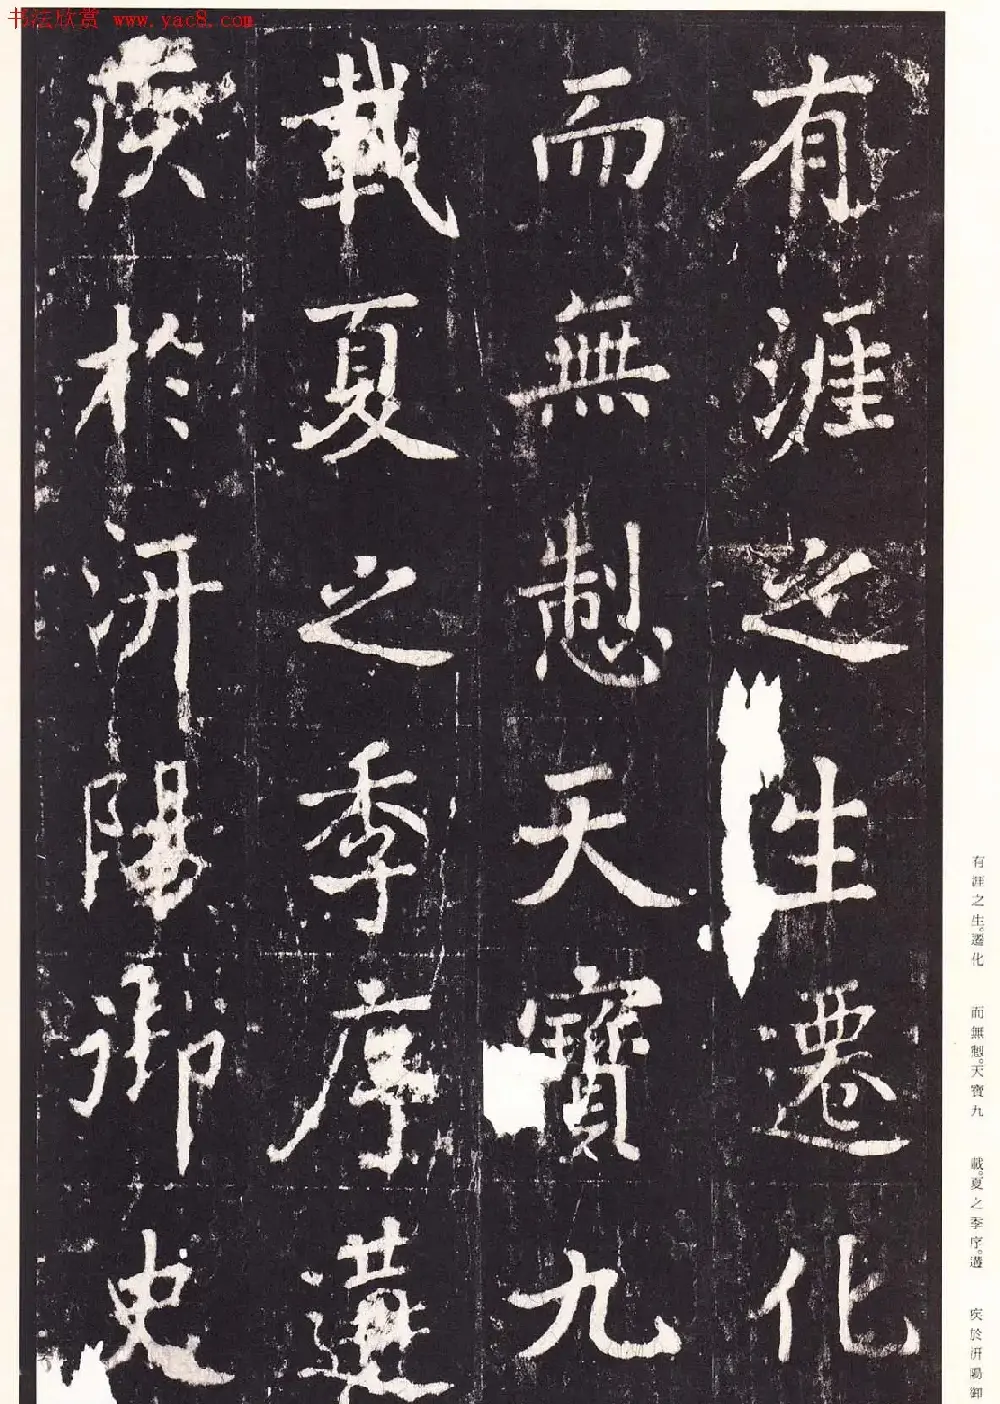 书法欣赏 www.yac8.com
有涯之生遷化
而無愆天寶九
載夏之季序遘
疾於汧陽御史
有涯之生。遷化
而無愆。天寶九
載。夏之季序。遘
疾於汧陽御